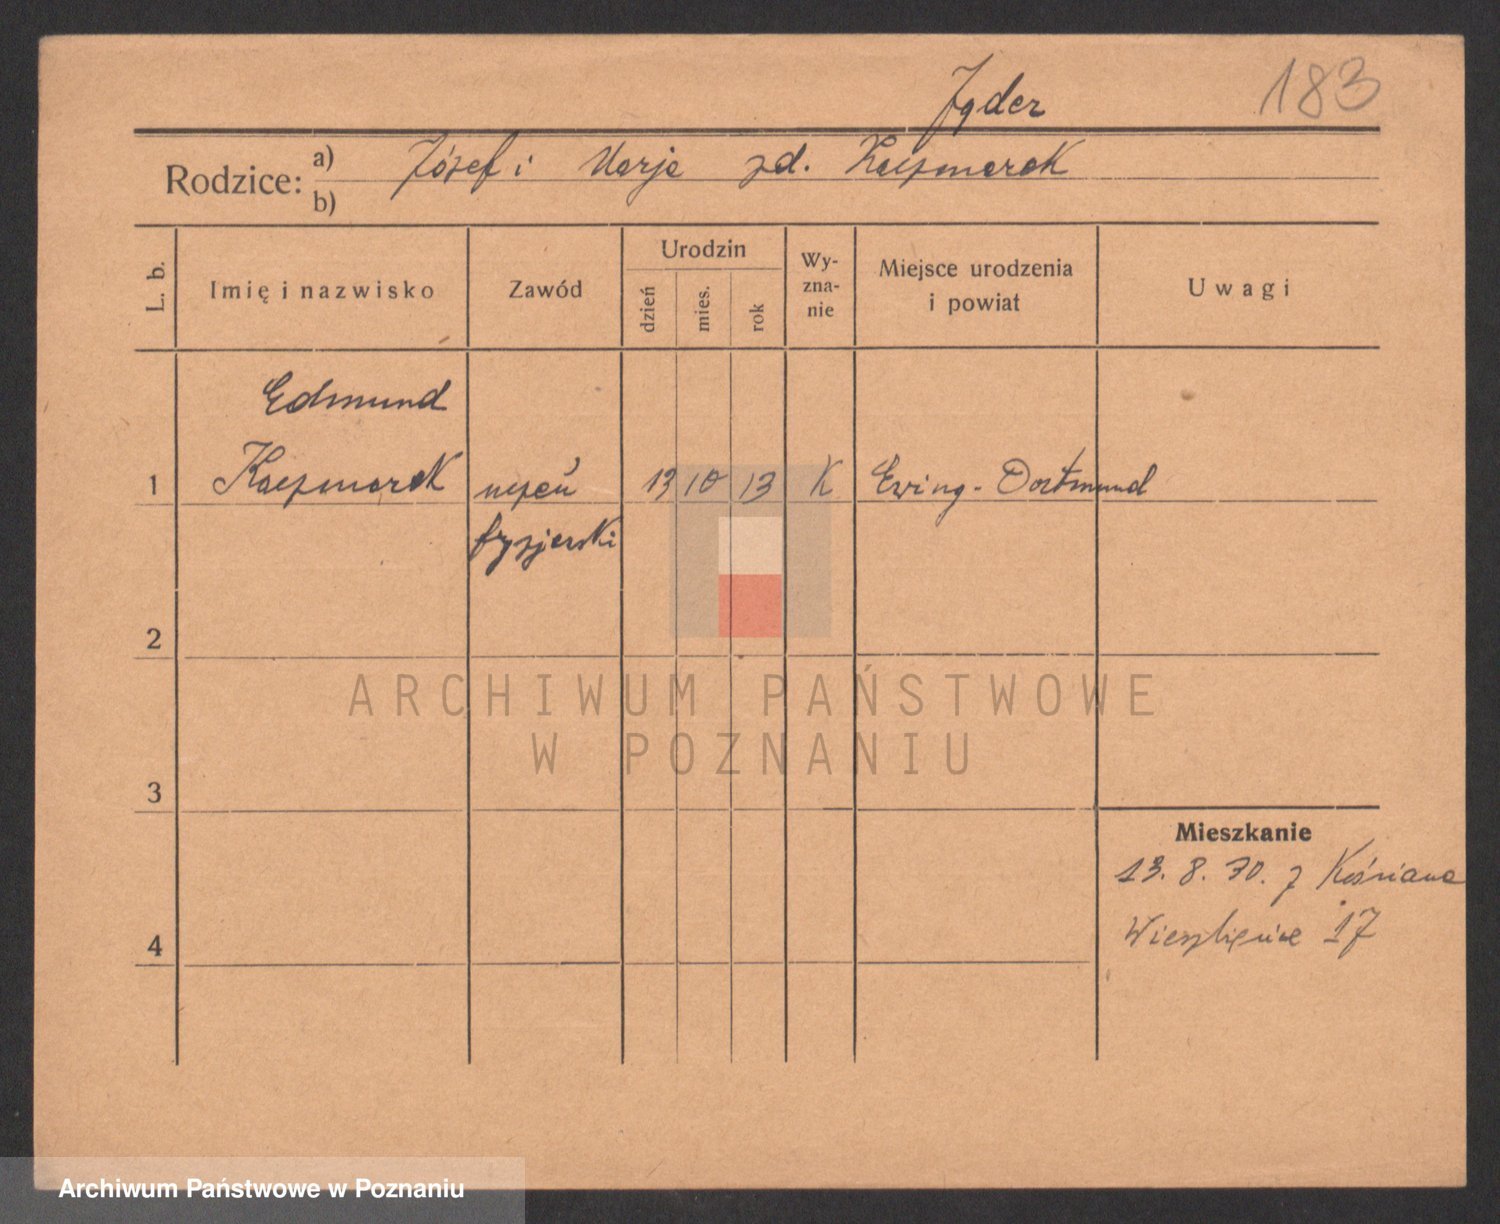 183
Rodzice: a) Józef i Marja zd. Kaczmarek
b)
L. b.
Imię i nazwisko
Zawód
Urodzin
dzień
mies.
rok
Wy-
zna-
nie
Miejsce urodzenia
i powiat
Uwagi
Edmund
1 Kaczmarek uczeń 13 10 13 K Ewing - Dortmund
fryzjerski
2
3
4
Mieszkanie
13. 8. 30. z Kościana
17
ARCHIWUM PAŃSTWOWE
W POZNANIU
Archiwum Państwowe w Poznaniu